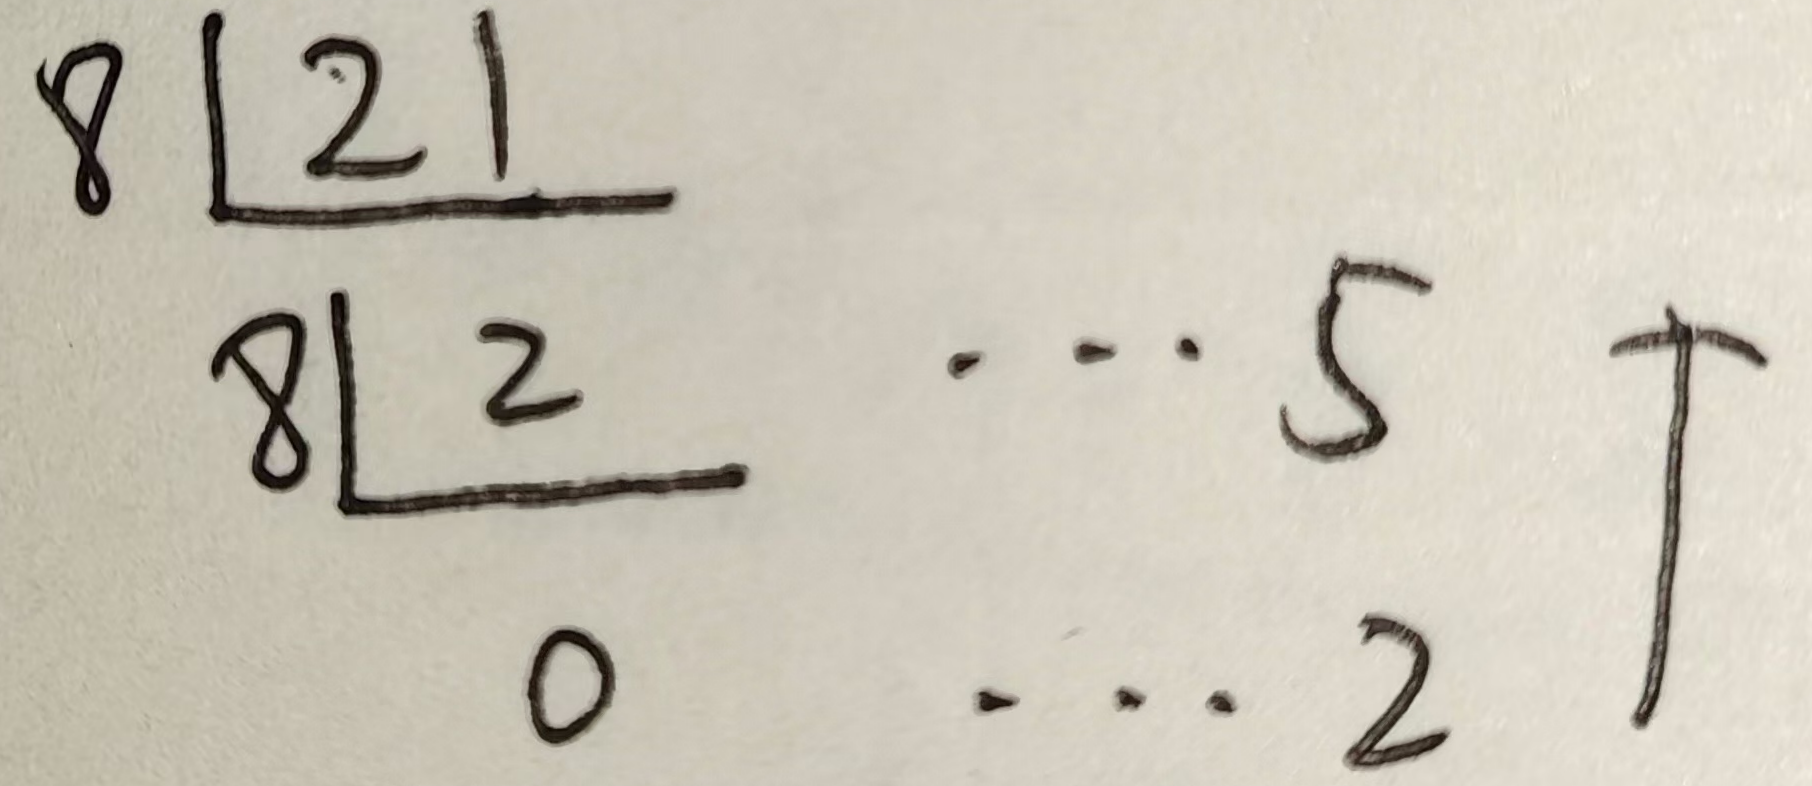 8 21
8 2 ... 5
0 ... 2